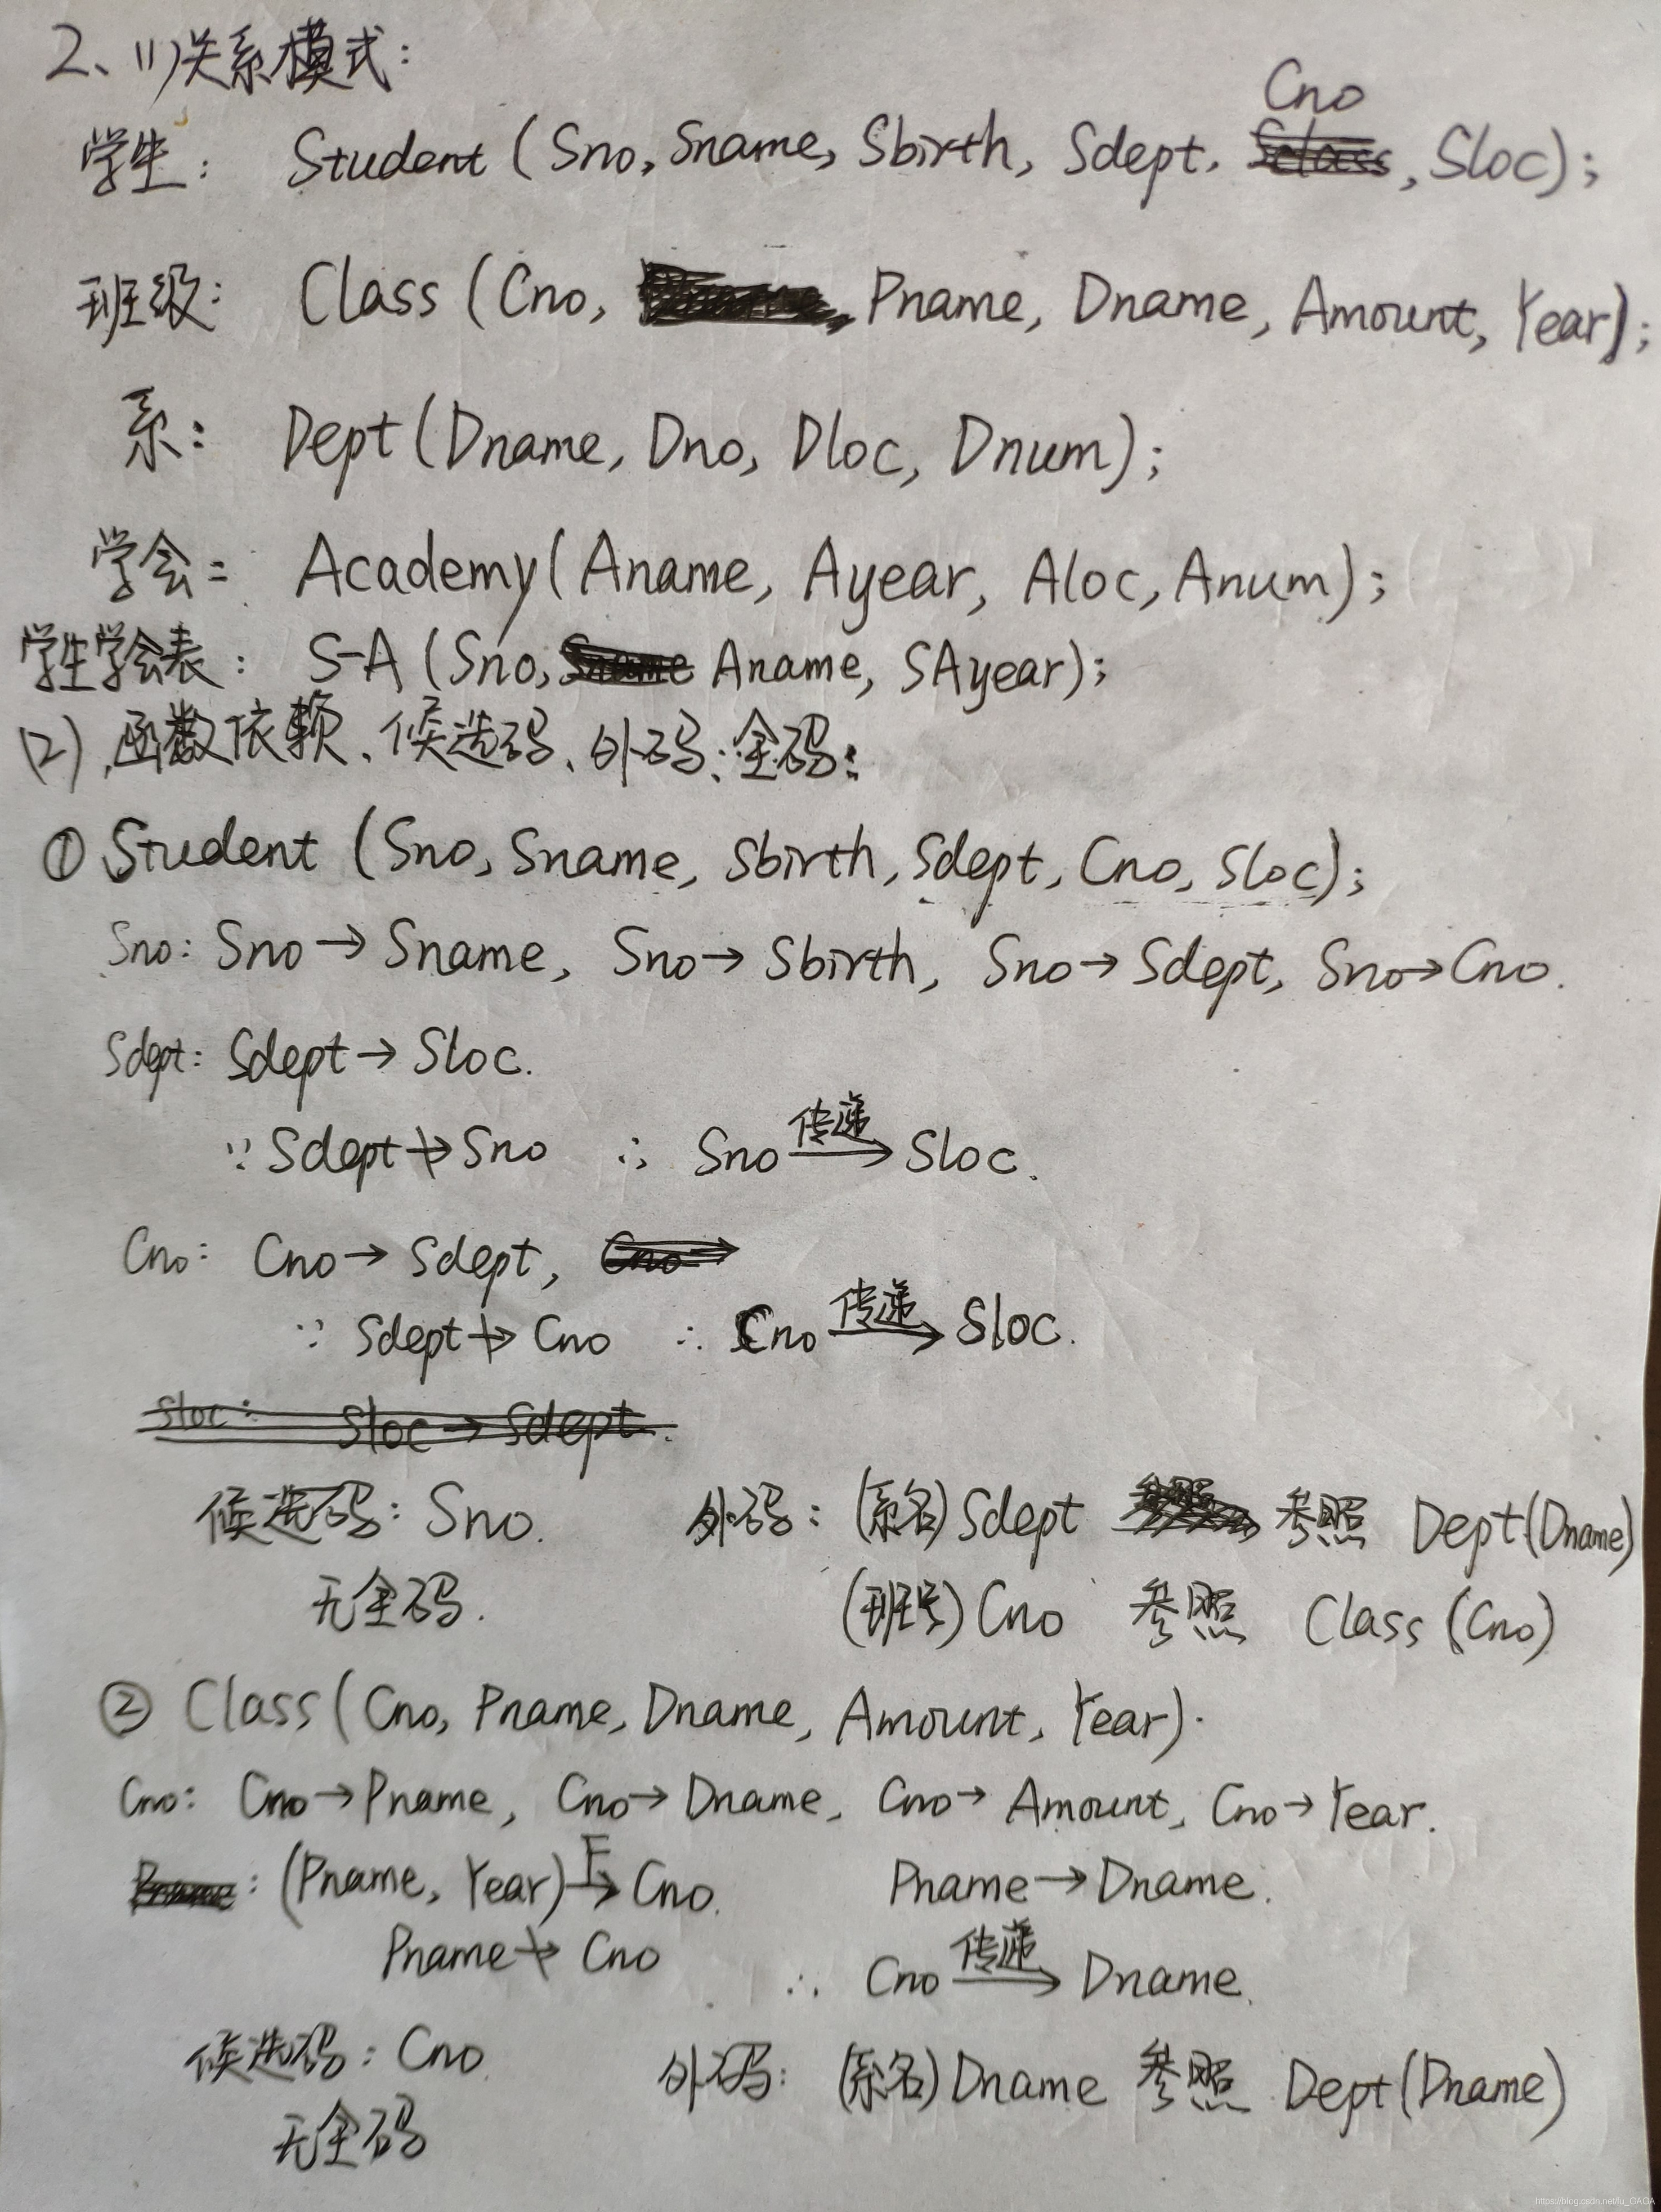 2、(1)关系模式:
学生: Student (Sno, Sname, Sbirth, Sdept, Cno, Sloc);
班级: Class (Cno, Pname, Dname, Amount, Year);
系: Dept (Dname, Dno, Dloc, Dnum);
学会: Academy (Aname, Ayear, Aloc, Anum);
学生学会表: S-A (Sno, Aname, SAyear);
(2)、函数依赖、候选码、外码、全码:
① Student (Sno, Sname, Sbirth, Sdept, Cno, Sloc);
Sno: Sno → Sname, Sno → Sbirth, Sno → Sdept, Sno → Cno.
Sdept: Sdept → Sloc.
∵ Sdept ↛ Sno ∴ Sno 传递→ Sloc.
Cno: Cno → Sdept, Cno →
∵ Sdept ↛ Cno ∴ Cno 传递→ Sloc.
Sloc: Sloc → Sdept.
候选码: Sno. 外码: (系名) Sdept 参照 Dept(Dname)
无全码. (班号) Cno 参照 Class (Cno)
② Class (Cno, Pname, Dname, Amount, Year).
Cno: Cno → Pname, Cno → Dname, Cno → Amount, Cno → Year.
: (Pname, Year) F→ Cno. Pname → Dname.
Pname ↛ Cno ∴ Cno 传递→ Dname.
候选码: Cno 外码: (系名) Dname 参照 Dept (Dname)
无全码
https://blog.csdn.net/lu_GAGA